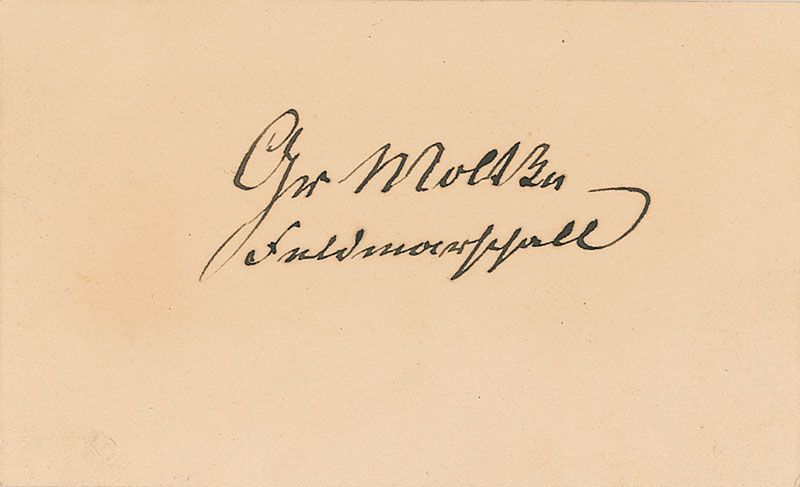 Gr Moltke
Feldmarschall